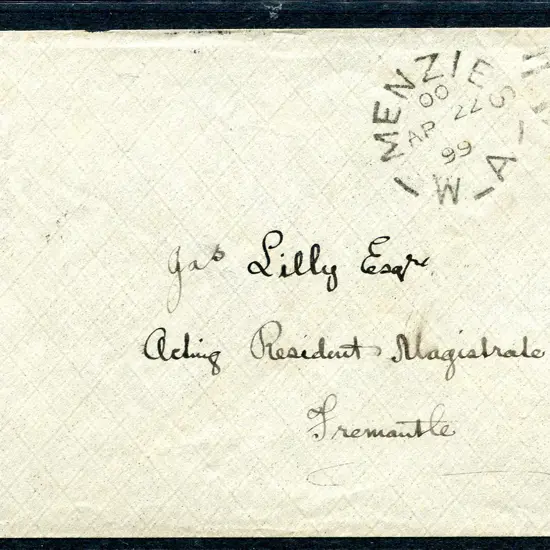 MENZIES
00
AP 22
99
W-A
Jas Lilly Esqre
Acting Resident Magistrate
Fremantle